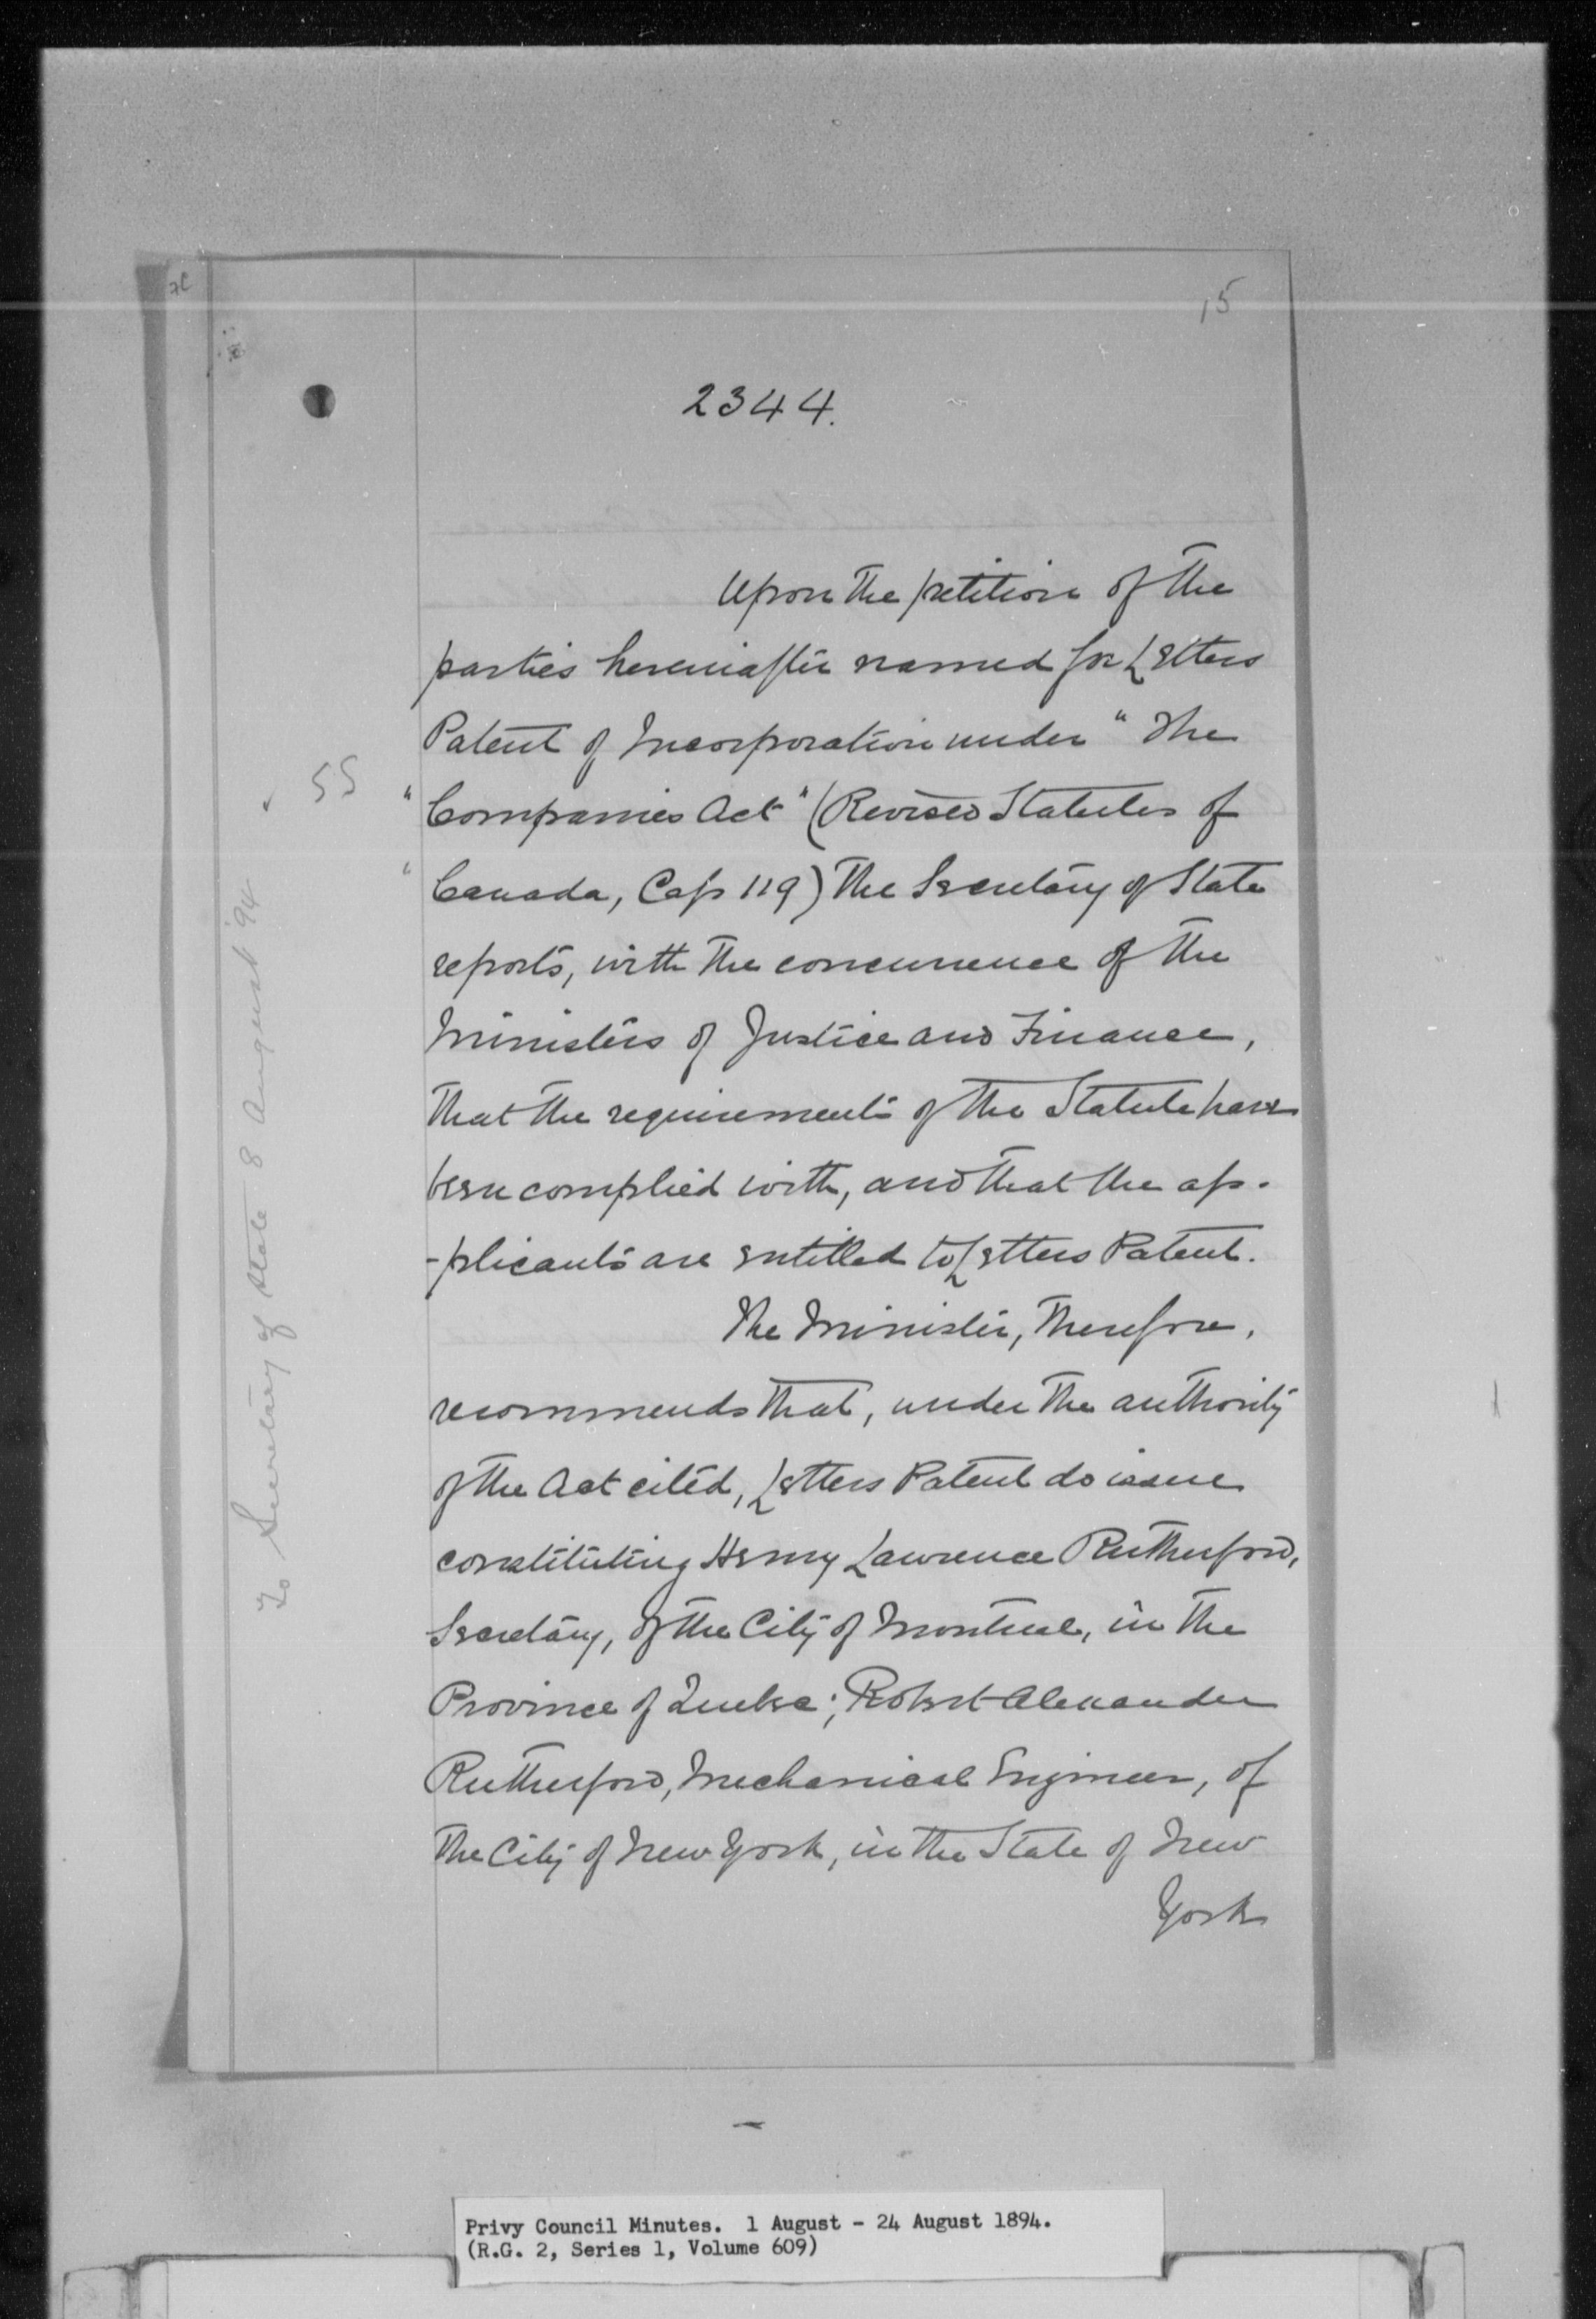 15
2344.
Upon the petition of the
parties hereinafter named for Letters
Patent of Incorporation under "The
"Companies Act" (Revised Statutes of
"Canada, Cap 119) The Secretary of State
reports, with the concurrence of the
Ministers of Justice and Finance,
that the requirements of the Statute have
been complied with, and that the ap-
-plicants are entitled to Letters Patent.
The Minister, therefore,
recommends that, under the authority
of the Act cited, Letters Patent do issue
constituting Henry Lawrence Rutherford,
Secretary, of the City of Montreal, in the
Province of Quebec; Robert Alexander
Rutherford, Mechanical Engineer, of
the City of New York, in the State of New
York
SS
To Secretary of State 8 August '94
Privy Council Minutes. 1 August - 24 August 1894.
(R.G. 2, Series 1, Volume 609)